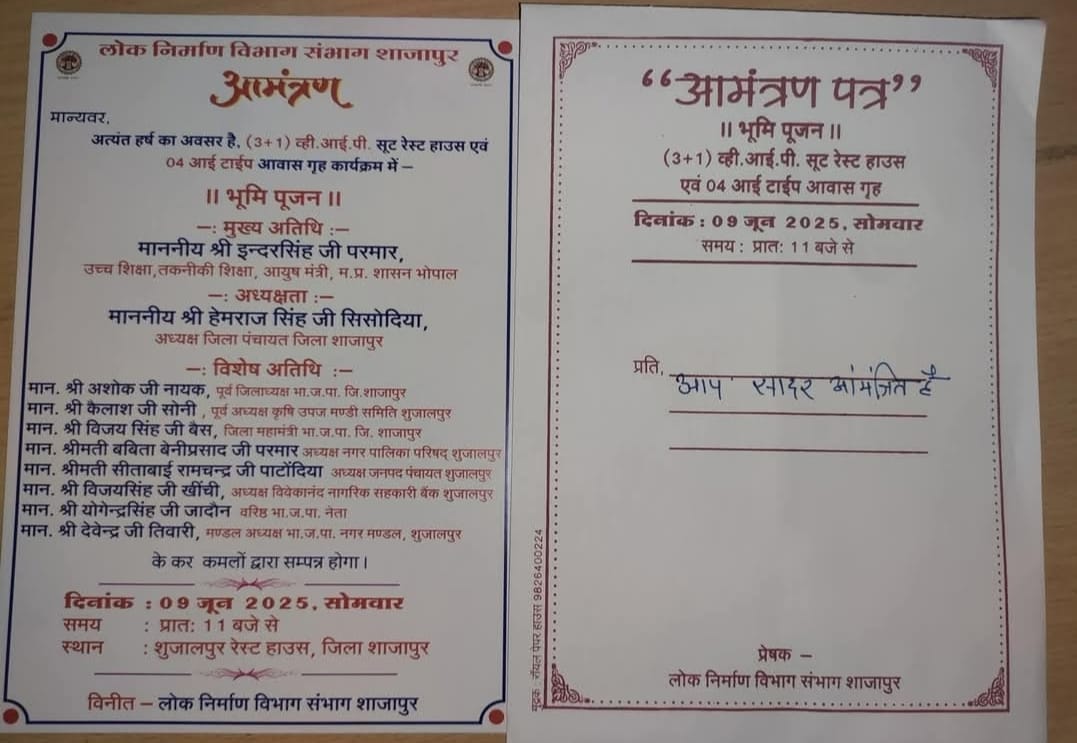 लोक निर्माण विभाग संभाग शाजापुर
आमंत्रण
मान्यवर,
अत्यंत हर्ष का अवसर है, (3+1) व्ही.आई.पी. सूट रेस्ट हाउस एवं
04 आई टाईप आवास गृह कार्यक्रम में –
॥ भूमि पूजन ॥
–: मुख्य अतिथि :–
माननीय श्री इन्दरसिंह जी परमार,
उच्च शिक्षा,तकनीकी शिक्षा, आयुष मंत्री, म.प्र. शासन भोपाल
–: अध्यक्षता :–
माननीय श्री हेमराज सिंह जी सिसोदिया,
अध्यक्ष जिला पंचायत जिला शाजापुर
–: विशेष अतिथि :–
मान. श्री अशोक जी नायक, पूर्व जिलाध्यक्ष भा.ज.पा. जि.शाजापुर
मान. श्री कैलाश जी सोनी , पूर्व अध्यक्ष कृषि उपज मण्डी समिति शुजालपुर
मान. श्री विजय सिंह जी बैस, जिला महामंत्री भा.ज.पा. जि. शाजापुर
मान. श्रीमती बबिता बेनीप्रसाद जी परमार अध्यक्ष नगर पालिका परिषद् शुजालपुर
मान. श्रीमती सीताबाई रामचन्द्र जी पाटोंदिया अध्यक्ष जनपद पंचायत शुजालपुर
मान. श्री विजयसिंह जी खींची, अध्यक्ष विवेकानंद नागरिक सहकारी बैंक शुजालपुर
मान. श्री योगेन्द्रसिंह जी जादौन वरिष्ठ भा.ज.पा. नेता
मान. श्री देवेन्द्र जी तिवारी, मण्डल अध्यक्ष भा.ज.पा. नगर मण्डल, शुजालपुर
के कर कमलों द्वारा सम्पन्न होगा।
दिनांक : 09 जून 2025, सोमवार
समय : प्रात: 11 बजे से
स्थान : शुजालपुर रेस्ट हाउस, जिला शाजापुर
विनीत – लोक निर्माण विभाग संभाग शाजापुर
“आमंत्रण पत्र”
॥ भूमि पूजन ॥
(3+1) व्ही.आई.पी. सूट रेस्ट हाउस
एवं 04 आई टाईप आवास गृह
दिनांक : 09 जून 2025, सोमवार
समय : प्रात: 11 बजे से
प्रति,
आप सादर आंमंत्रित है
प्रेषक –
लोक निर्माण विभाग संभाग शाजापुर
मुद्रक : रॉयल पेपर हाउस 9826400224